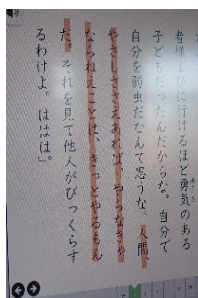 者様よびに行けるほど勇気のある
子どもだったんだからな。自分で
自分を弱虫だなんて思うな。人間、
やさしささえあれば、やらなきゃ
ならねえことは、きっとやるもん
だ。それを見て他人がびっくらす
るわけよ。ははは」。